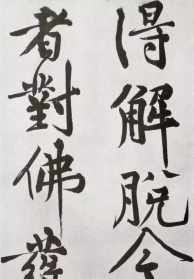 得解脫今
者對佛